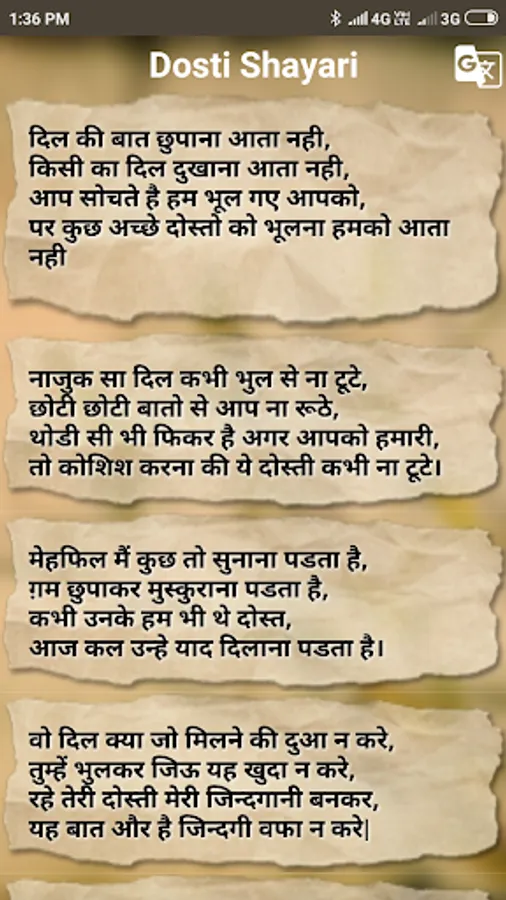 1:36 PM 4G VoLTE 3G
Dosti Shayari
दिल की बात छुपाना आता नही,
किसी का दिल दुखाना आता नही,
आप सोचते है हम भूल गए आपको,
पर कुछ अच्छे दोस्तो को भूलना हमको आता
नही
नाजुक सा दिल कभी भुल से ना टूटे,
छोटी छोटी बातो से आप ना रूठे,
थोडी सी भी फिकर है अगर आपको हमारी,
तो कोशिश करना की ये दोस्ती कभी ना टूटे।
मेहफिल मैं कुछ तो सुनाना पडता है,
ग़म छुपाकर मुस्कुराना पडता है,
कभी उनके हम भी थे दोस्त,
आज कल उन्हे याद दिलाना पडता है।
वो दिल क्या जो मिलने की दुआ न करे,
तुम्हें भुलकर जिऊ यह खुदा न करे,
रहे तेरी दोस्ती मेरी जिन्दगानी बनकर,
यह बात और है जिन्दगी वफा न करे|